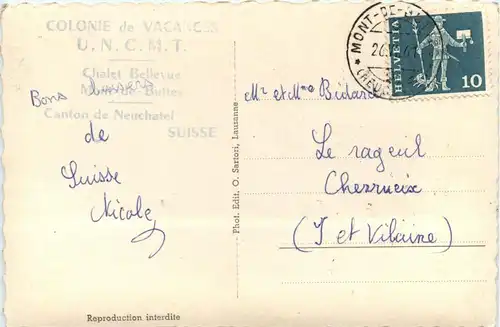 COLONIE de VACANCES
U. N. C. M. T.
Chalet Bellevue
Mont-de-Buttes
Canton de Neuchatel
SUISSE
Bons baisers
de
Suisse
Nicole
Reproduction interdite
Phot. Edit. O. Sartori, Lausanne
MONT-DE-
HELVETIA
10
Mr et Mme Bidard
Le rageul
Cherrueix
(I et Vilaine)